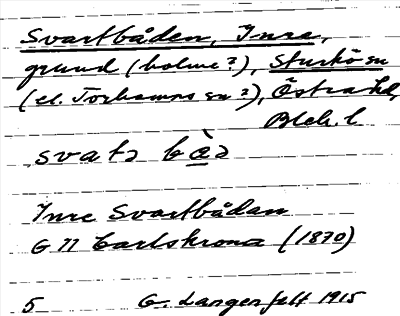 Svartbåden, Inre,
grund (holme?), Sturkö sn
(el. Torhamns sn?), Östra hd,
Blek. l.
Inre Svartbådan
G 11 Carlskrona (1870)
5 G. Langenfelt 1915